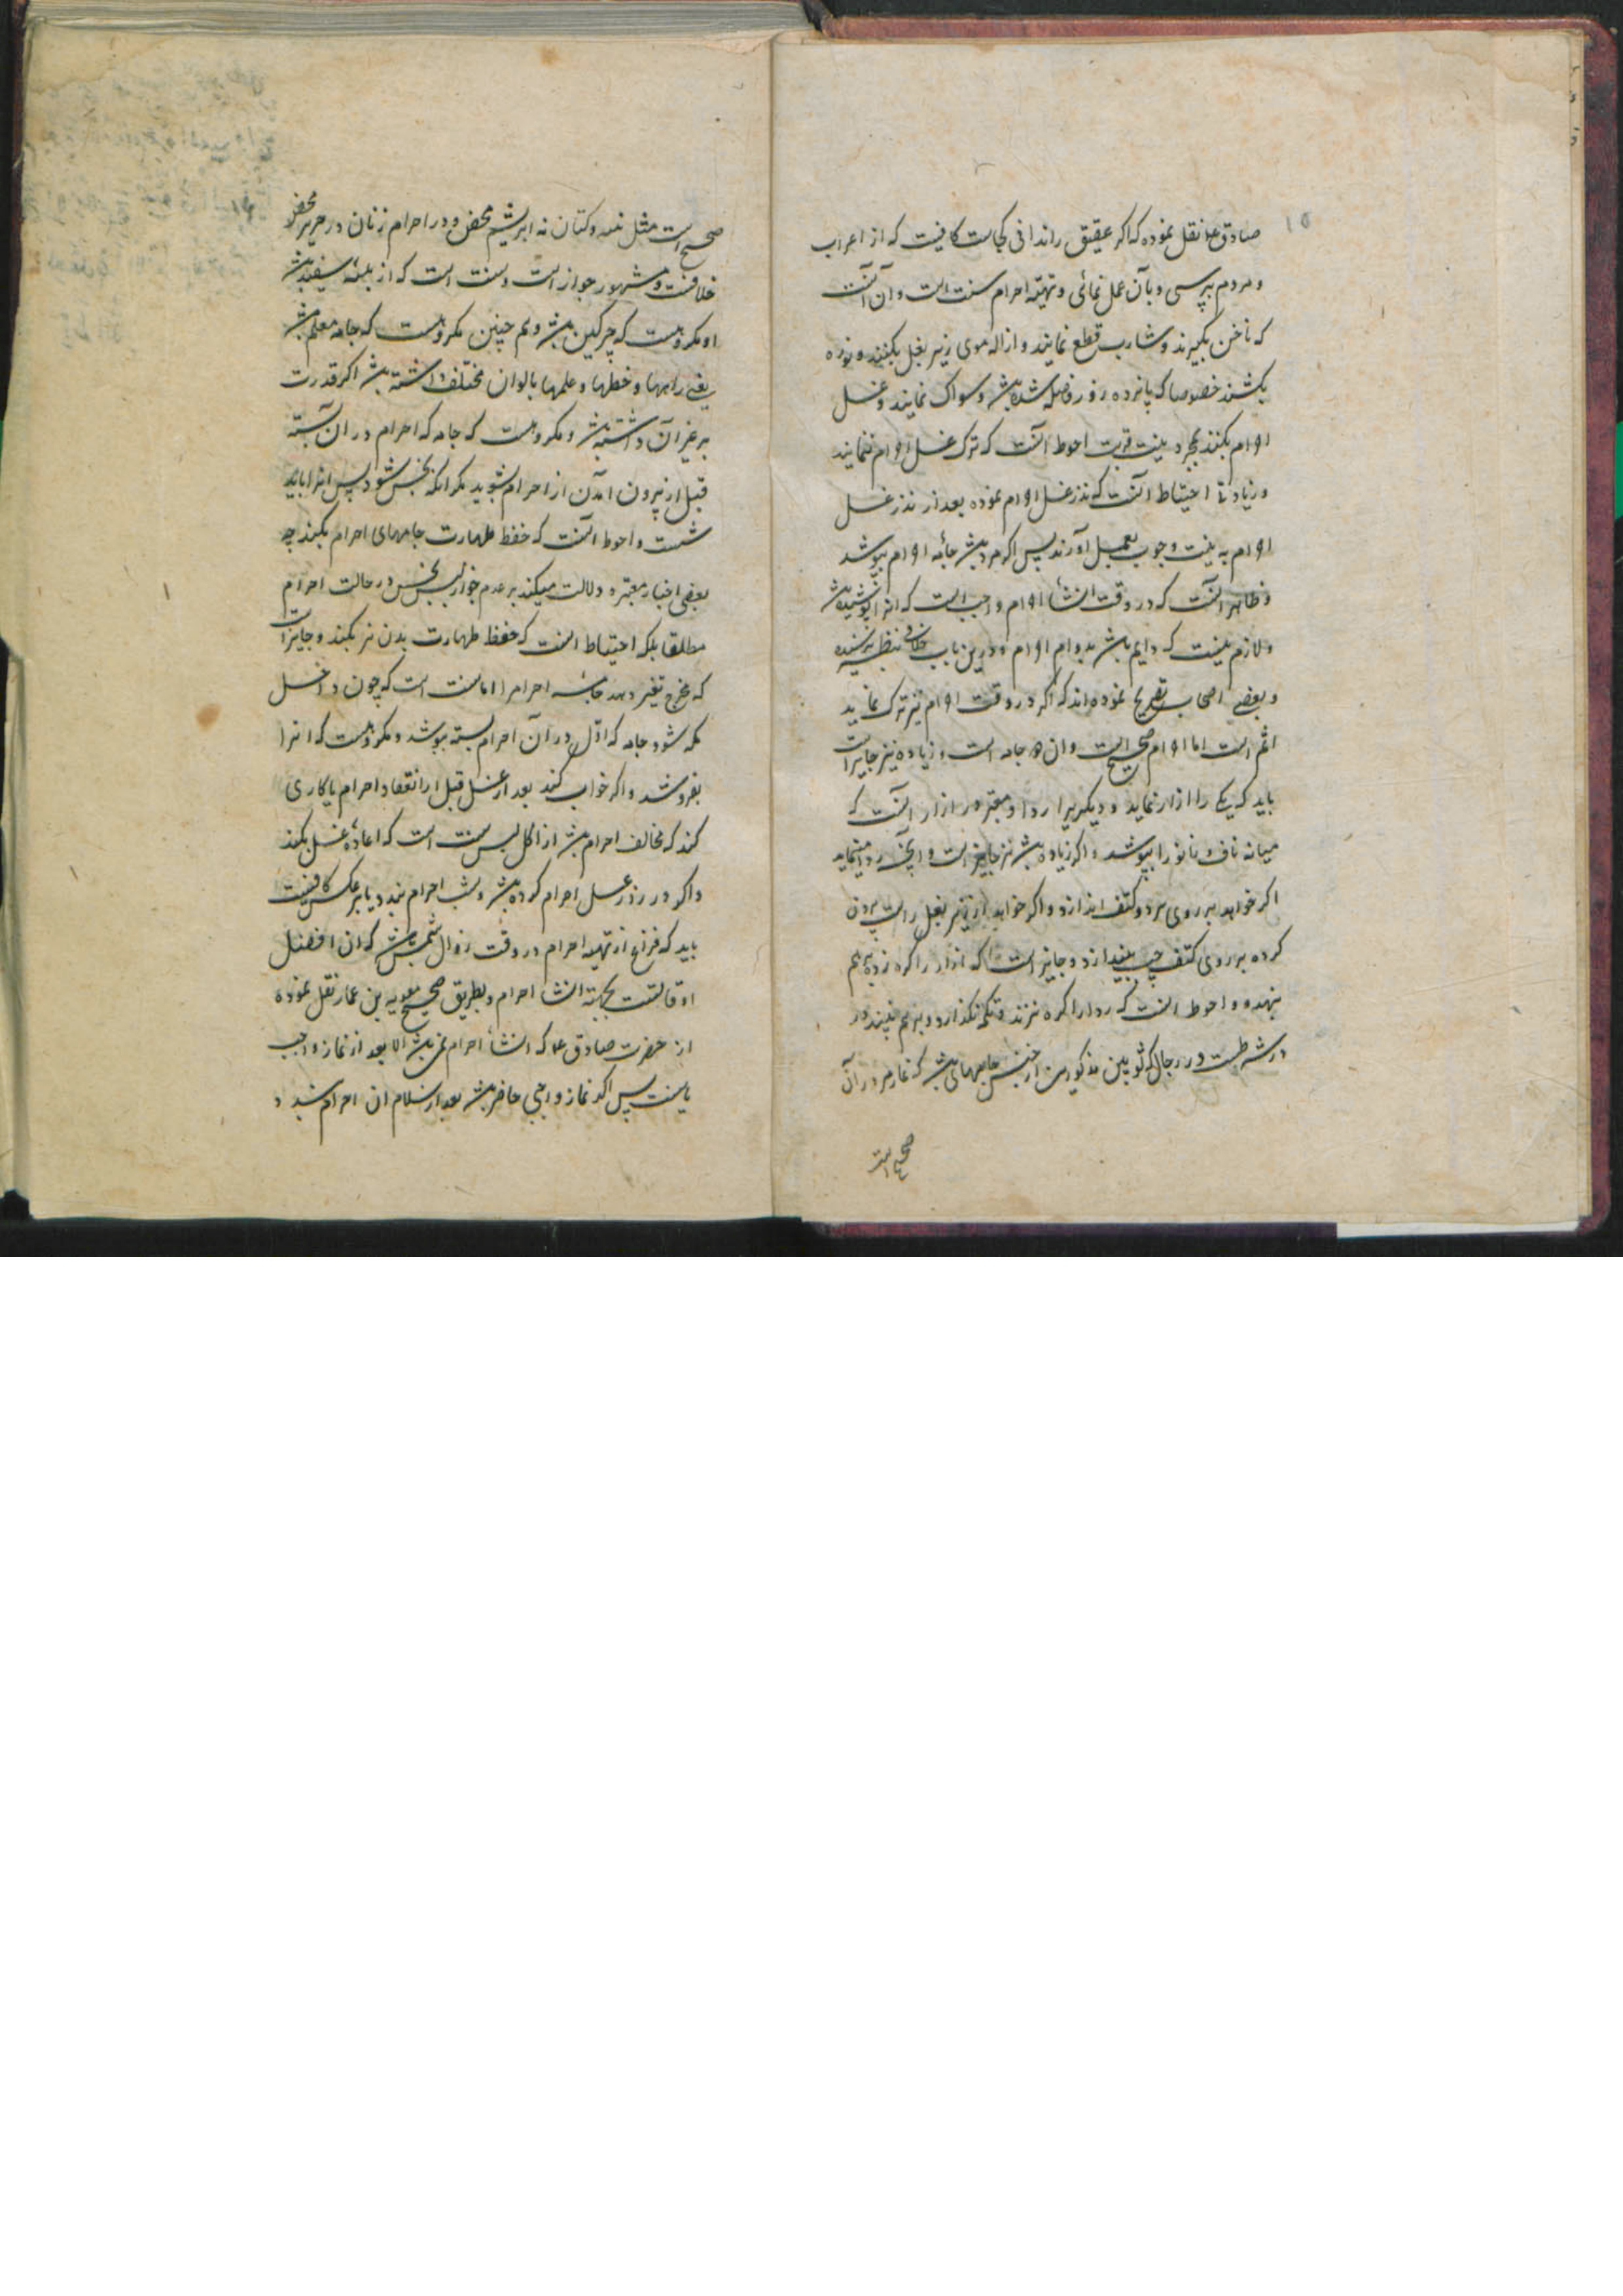 ۱۵
صادق ع نقل نموده که اگر عقیق را ندانی کجاست کافیست که از اعراب
و مردم بپرسی و بآن عمل نمائی و تهیه احرام سنت است و آن آنست
که ناخن بگیرند و شارب قطع نمایند و ازاله موی زیر بغل بکنند و نوره
بکشند خصوصا که پانزده روز فاصله شده باشد و سواک نمایند و غسل
احرام بکنند بمجرد نیت قربت احوط آنست که ترک غسل احرام ننمایند
و زیادتی احتیاط آنست که نذر غسل احرام نموده بعد از نذر غسل
احرام به نیت وجوب بعمل آورند پس اگر مرد باشد جامه احرام بپوشد
و ظاهر آنست که در وقت انشأ احرام واجب است که انرا پوشیده باشد
و لازم نیست که دایم باشد بدوام احرام و درین باب خلافی بنظر نرسیده
و بعضی اصحاب تصریح نموده اند که اگر در وقت احرام نیز ترک نماید
اثم است اما احرام صحیح است و ان دو جامه است و زیاده نیز جایز است
باید که یکی را ازار نماید و دیگریرا ردا و معتبر در ازار آنست که
میانه ناف تا زانو را بپوشد و اگر زیاده باشد نیز جایز است و آنچه ردا مینماید
اگر خواهد بر روی هر دو کتف اندازد و اگر خواهد از زیر بغل راست بیرون
کرده بر روی کتف چپ بیندازد و جایز است که ازار را گره زده بر هم
بنهد و احوط آنست که ردا را گره نزند و تکمه نگذارد و بر هم نبندد و
شرطست در رجال که ثوبین مذکورین از جنس جامهای باشد که نماز مرد در آن
صحیح است
صحیح است مثل پنبه و کتان نه ابریشم محض و در احرام زنان در حریر محض
خلافست و مشهور جواز است و سنت است که از پنبه سفید باشد
و مکروهست که چرکین باشد و هم چنین مکروهست که جامه معلم باشد
یعنی راهها و خطها و علمها بالوان مختلف داشته باشد اگر قدرت
بر غیر آن داشته باشد و مکروهست که جامه که احرام در ان بسته
قبل از بیرون آمدن از احرام بشوید مگر انکه نجس شود پس انرا باید
شست و احوط آنست که حفظ طهارت جامهای احرام بکند چه
بعضی اخبار معتبره دلالت میکند بر عدم جواز لبس نجس در حالت احرام
مطلقا بلکه احتیاط آنست که حفظ طهارت بدن نیز بکند و جایز است
که محرم تغییر دهد جامه احرام را اما سنت است که چون داخل
مکه شود جامه که اول در آن احرام بسته بپوشد و مکروهست که انرا
بفروشد و اگر خواب کند بعد از غسل قبل از انعقاد احرام یا کاری
کند که مخالف احرام باشد از اکل و لبس سنت است که اعاده غسل بکند
و اگر در روز غسل احرام کرده باشد و شب احرام بندد یا بر عکس کافیست
باید که فراغ از تهیه احرام در وقت زوال شمس باشد که ان افضل
اوقاتست بجهة انشأ احرام و بطریق صحیح معویه بن عمار نقل نموده
از حضرت صادق ع که انشأ احرام نمی باشد الا بعد از نماز واجب
یا سنت پس اگر نماز واجبی حاضر باشد بعد از سلام ان احرام بندد و